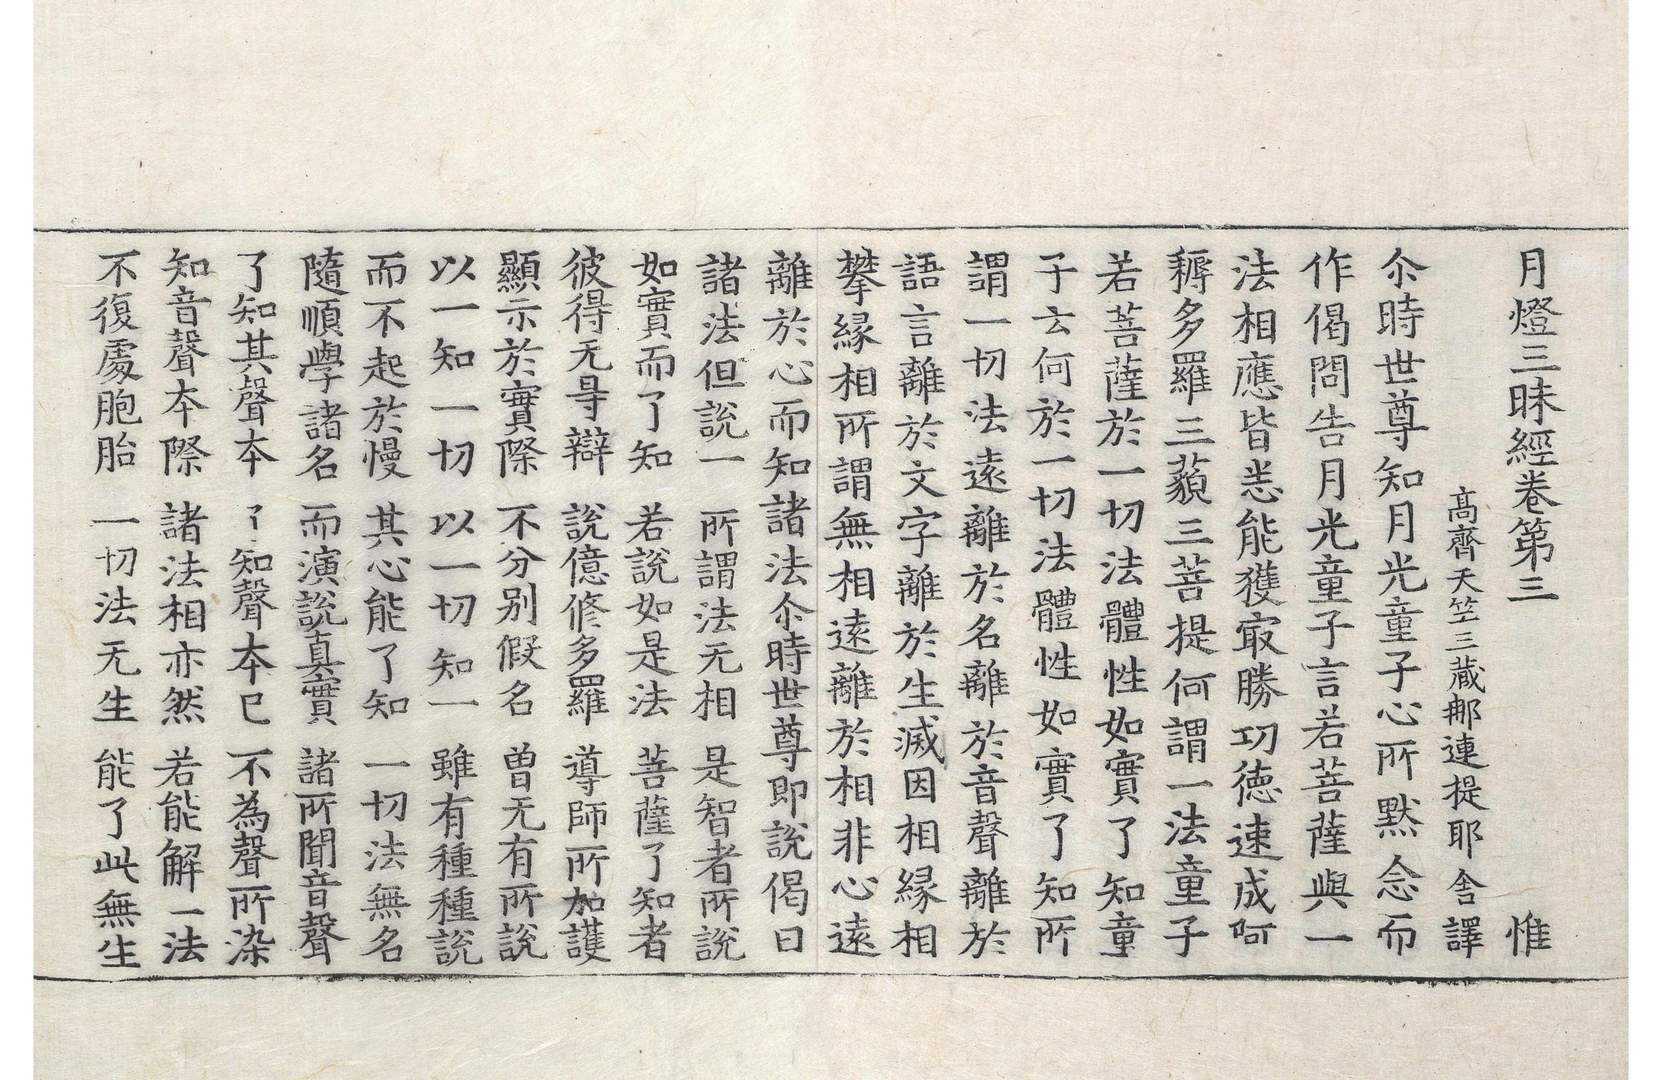 月燈三昧經卷第三 惟
高齊天竺三藏那連提耶舍譯
尒時世尊知月光童子心所黙念而
作偈問告月光童子言若菩薩與一
法相應皆悉能獲㝡勝功徳速成阿
耨多羅三藐三菩提何謂一法童子
若菩薩於一切法體性如實了知童
子云何於一切法體性如實了知所
謂一切法遠離於名離於音聲離於
語言離於文字離於生滅因相縁相
攀縁相所謂無相遠離於相非心遠
離於心而知諸法尒時世尊即說偈曰
諸法但說一 所謂法无相 是智者所說
如實而了知 若說如是法 菩薩了知者
彼得无㝵辯 說億修多羅 導師所加護
顯示於實際 不分别假名 曾无有所說
以一知一切 以一切知一 雖有種種說
而不起於慢 其心能了知 一切法無名
隨順學諸名 而演說真實 諸所聞音聲
了知其聲本 了知聲本已 不為聲所染
知音聲本際 諸法相亦然 若能解一法
不復處胞胎 一切法无生 能了此無生